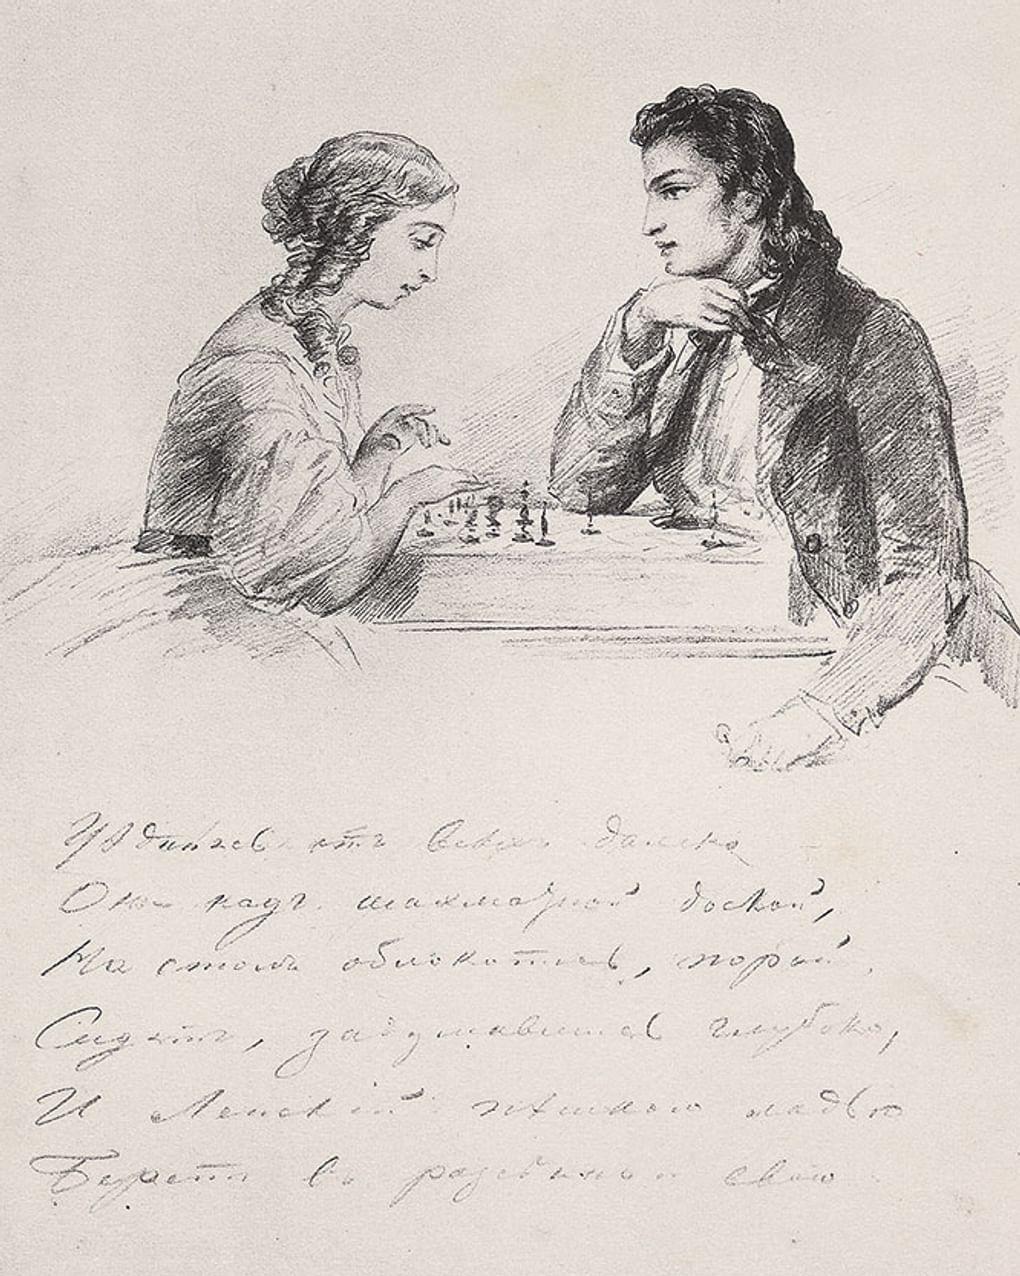 Уединясь отъ всѣхъ далеко
Они надъ шахматной доской,
На столъ облокотясь, порой,
Сидятъ, задумавшись глубоко,
И Ленскій пѣшкою ладью
Беретъ въ разсѣяньи свою